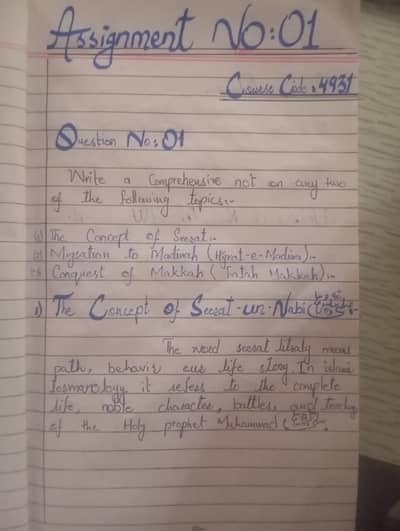 Assignment No:01
Course Code:4931
Question No:01
Write a Comprehensive not on any two
of the following topics:-
(a) The Concept of Seerat:-
Migration to Madinah (Hijrat-e-Madina):-
Conquest of Makkah (Fatah Makkah):-
1) The Concept of Seerat-un-Nabi
The word seerat litraly means
path, behavir life story. In
it refers to the complete
life, noble character, battles, and
of the Holy prophet Muhammad